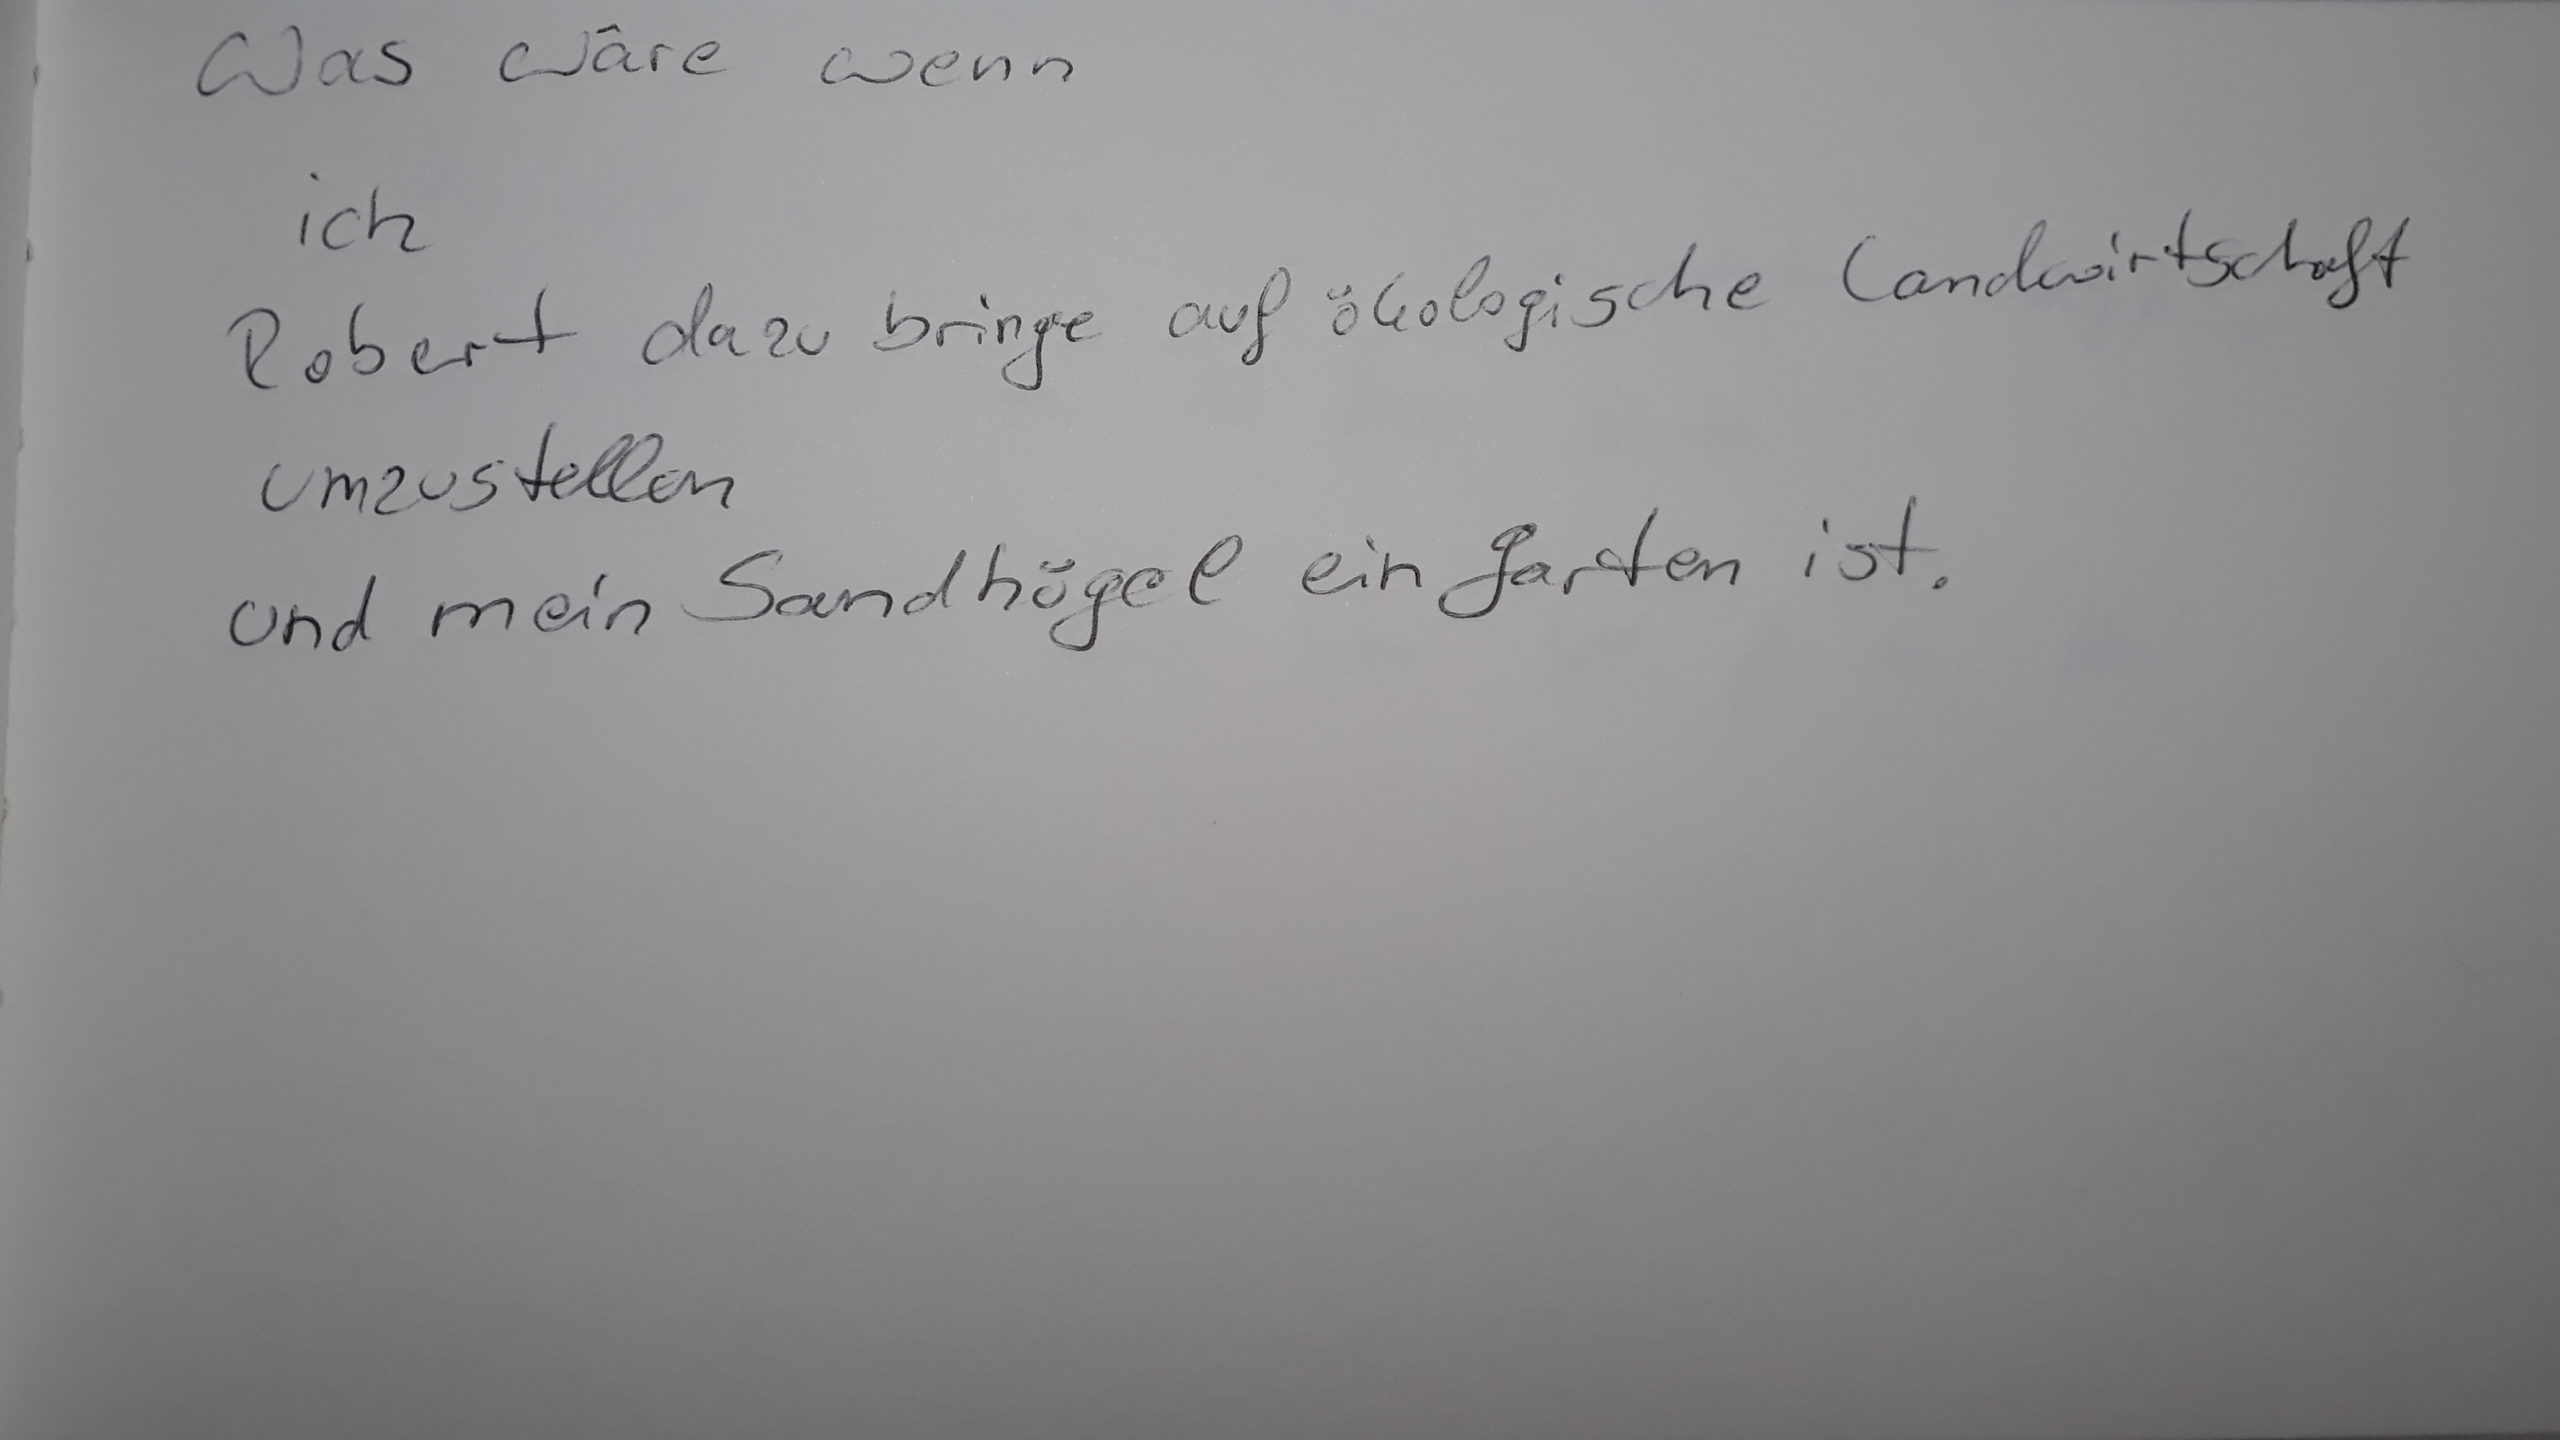 Was wäre wenn
ich
Robert dazu bringe auf ökologische Landwirtschaft
umzustellen
und mein Sandhügel ein Garten ist.